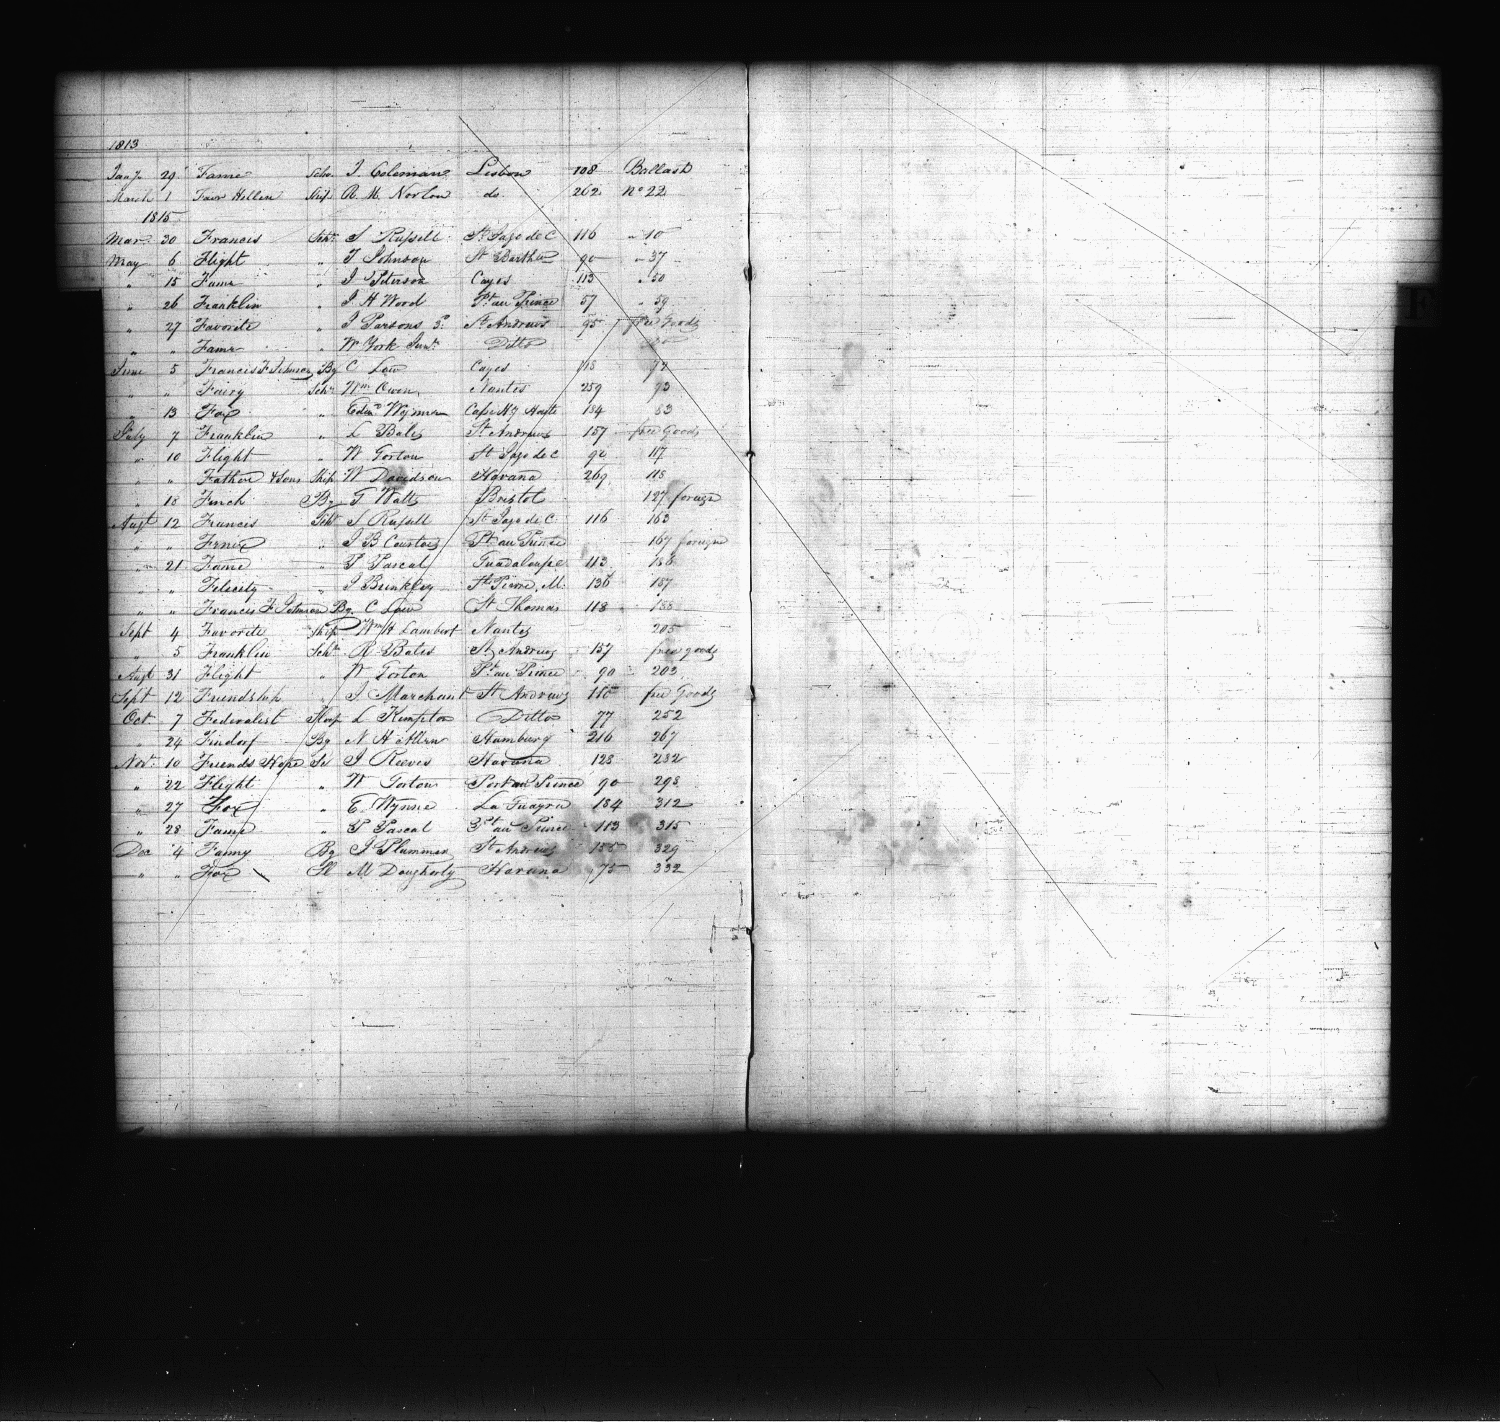 1813
Jany 29 Fame Schr J. Coleman Lisbon 108 Ballast
March 1 Fair Hellen Ship R. M. Norton do 262 No 22
1815
Mar 30 Francis Schr S Russell St Jago de C 116 " 10
May 6 Flight " T Johnson St Barths 90 " 37
" 15 Fame " J Peterson Cayes 113 " 50
" 26 Franklin " J. H Wood Pt au Prince 57 " 59
" 27 Favorite " J Parsons St Andrews 95 free Goods
" " Fame " W York Junr Ditto
June 5 Francis F Johnson Bg C Low Cayes 118 72
" " Fairy Schr Wm Owen Nantes 259 93
" 13 Fox " Edwd Wynne Cape Hayte 184 83
July 7 Franklin " L Bates St Andrews 157 free Goods
" 10 Flight " W Gorton St Jago de C 90 117
" " Father & Sons Ship W Davidson Havana 269 118
" 18 Finch Bg T Watts Bristol 127 foreign
Augt 12 Francis Schr S Russell St Jago de C 116 163
" " Fenix " J B Courtois Pt au Prince 167 foreign
" 21 Fame " P Pascal Guadaloupe 113 186
" Felicity " J Brinkley St Pierre, M. 136 187
" " Francis F Johnson Bg. C Low St Thomas 118 188
Sept 4 Favorite Ship Wm H Lambert Nantes 205
" 5 Franklin Schr R Bates St Andrews 157 free goods
Augt 31 Flight " W Gorton Pt au Prince 90 203
Sept 12 Friendship " J Marchant St Andrews free Goods
Oct 7 Federalist Sloop L Kempton Ditto 77 252
" 24 Findorf Bg N H Allen Hamburg 216 267
Novr 10 Friends Hope Sr J Reeves Havana 128 282
" 22 Flight " W Gorton Port au Prince 90 298
" 27 Fox " E. Wynne La Guayra 184 312
" 28 Fame " P Pascal Pt au Prince 113 315
Dec 4 Fanny Bg J Plummer St Andrews 155 329
" " Fox Sl M Dougherty Havana 75 332
F